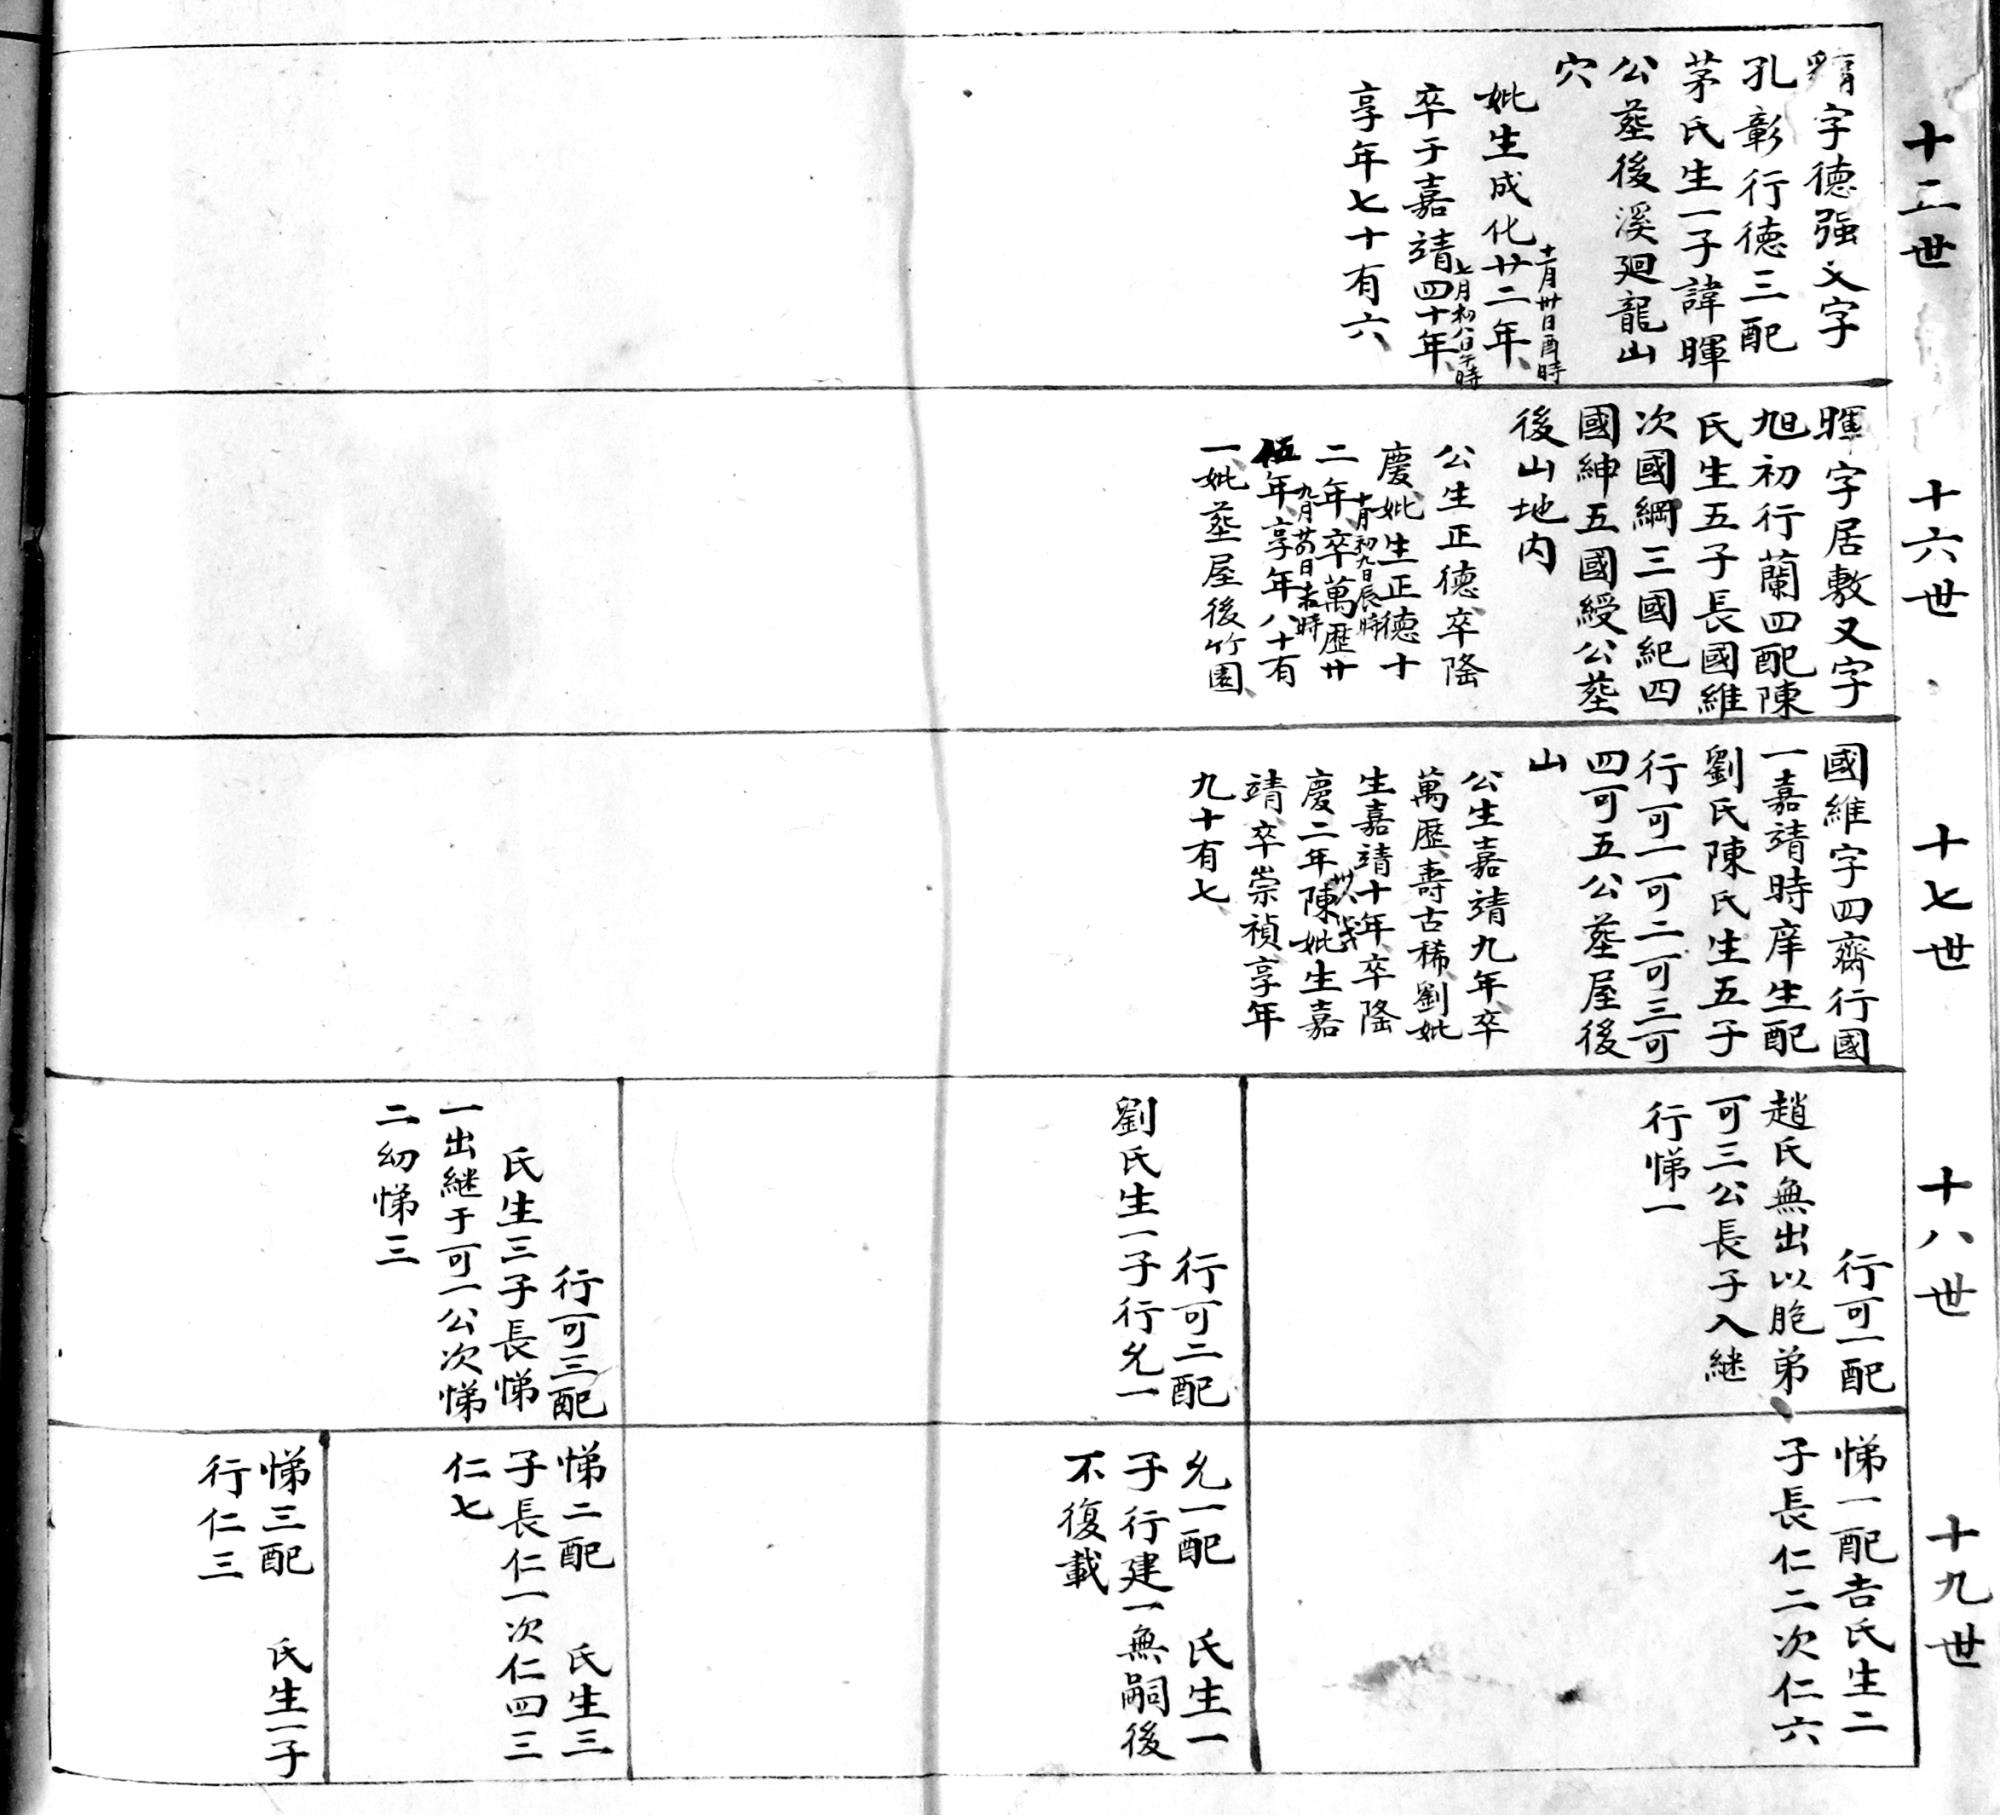 十二世
字德强又字
孔彰行德三配
茅氏生一子諱暉
公塟後溪廻龍山
穴
妣生成化廿二年、
十一月卅日酉時
卒于嘉靖四十年、
七月初八日午時
享年七十有六、
十六世
暉字居敷又字
旭初行蘭四配陳
氏生五子長國維
次國綱三國紀四
國紳五國綬公塟
後山地内
公生正德、卒隆
慶、妣生正德十
十月初九日辰時
二年、卒萬歷廿
九月廿四日未時
伍年、享年八十有
一、妣塟屋後竹園、
十七世
國維字四齋行國
一嘉靖時庠生配
劉氏陳氏生五子
行可一可二可三可
四可五公塟屋後
山
公生嘉靖九年、卒
萬歷、壽古稀、劉妣
生嘉靖十年、卒隆
慶二年、陳妣生嘉
靖、卒崇禎、享年
九十有七、
十八世
行可一配
趙氏無出以胞弟
可三公長子入継
行悌一
行可二配
劉氏生一子行允一
行可三配
氏生三子長悌
一出継于可一公次悌
二幼悌三
十九世
悌一配吉氏生二
子長仁二次仁六
允一配 氏生一
子行建一無嗣後
不復載
悌二配 氏生三
子長仁一次仁四三
仁七
悌三配 氏生一子
行仁三